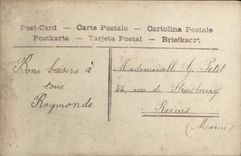 Post-Card – Carte Postale – Cartolina Postale
Postkarte – Tarjeta Postal – Briefkaart
Bons baisers à
tous
Raymonde
Mademoiselle G. Petit
rue de Strasbourg
Reims
(Marne)